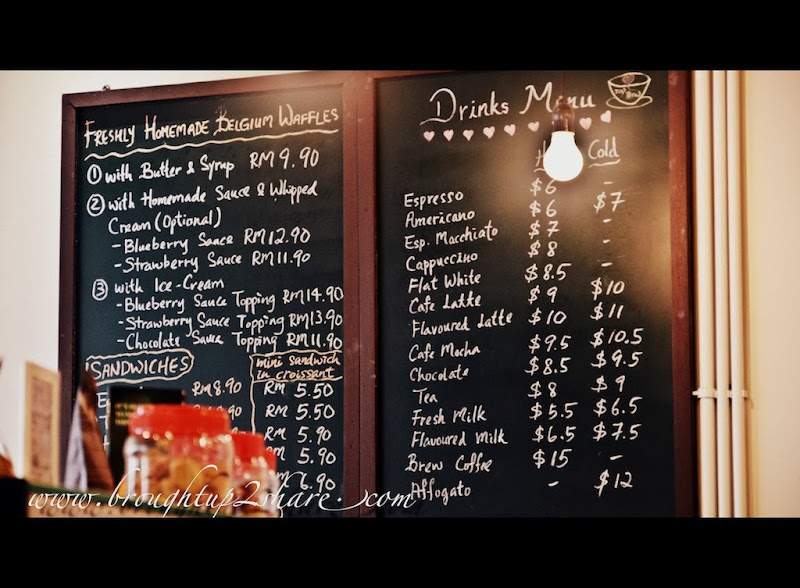 FRESHLY HOMEMADE BELGIUM WAFFLES
① with Butter & Syrup RM 9.90
② with Homemade Sauce & Whipped
Cream (Optional)
- Blueberry Sauce RM 12.90
- Strawberry Sauce RM 11.90
③ with Ice-Cream
- Blueberry Sauce Topping RM 14.90
- Strawberry Sauce Topping RM 13.90
- Chocolate Sauce Topping RM 11.90
SANDWICHES
mini sandwich
in croissant
RM 8.90 RM 5.50
RM 5.50
RM 5.90
5.90
6.90
Drinks Menu
Cold
Espresso $6 -
Americano $6 $7
Esp. Macchiato $7 -
Cappuccino $8 -
Flat White $8.5 -
Cafe Latte $9 $10
Flavoured Latte $10 $11
Cafe Mocha $9.5 $10.5
Chocolate $8.5 $9.5
Tea $8 $9
Fresh Milk $5.5 $6.5
Flavoured Milk $6.5 $7.5
Brew Coffee $15 -
Affogato - $12
www.broughtup2share.com